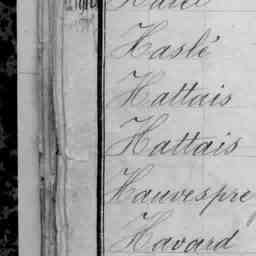 Haslé
Hattais
Hattais
Hauvespre
Havard